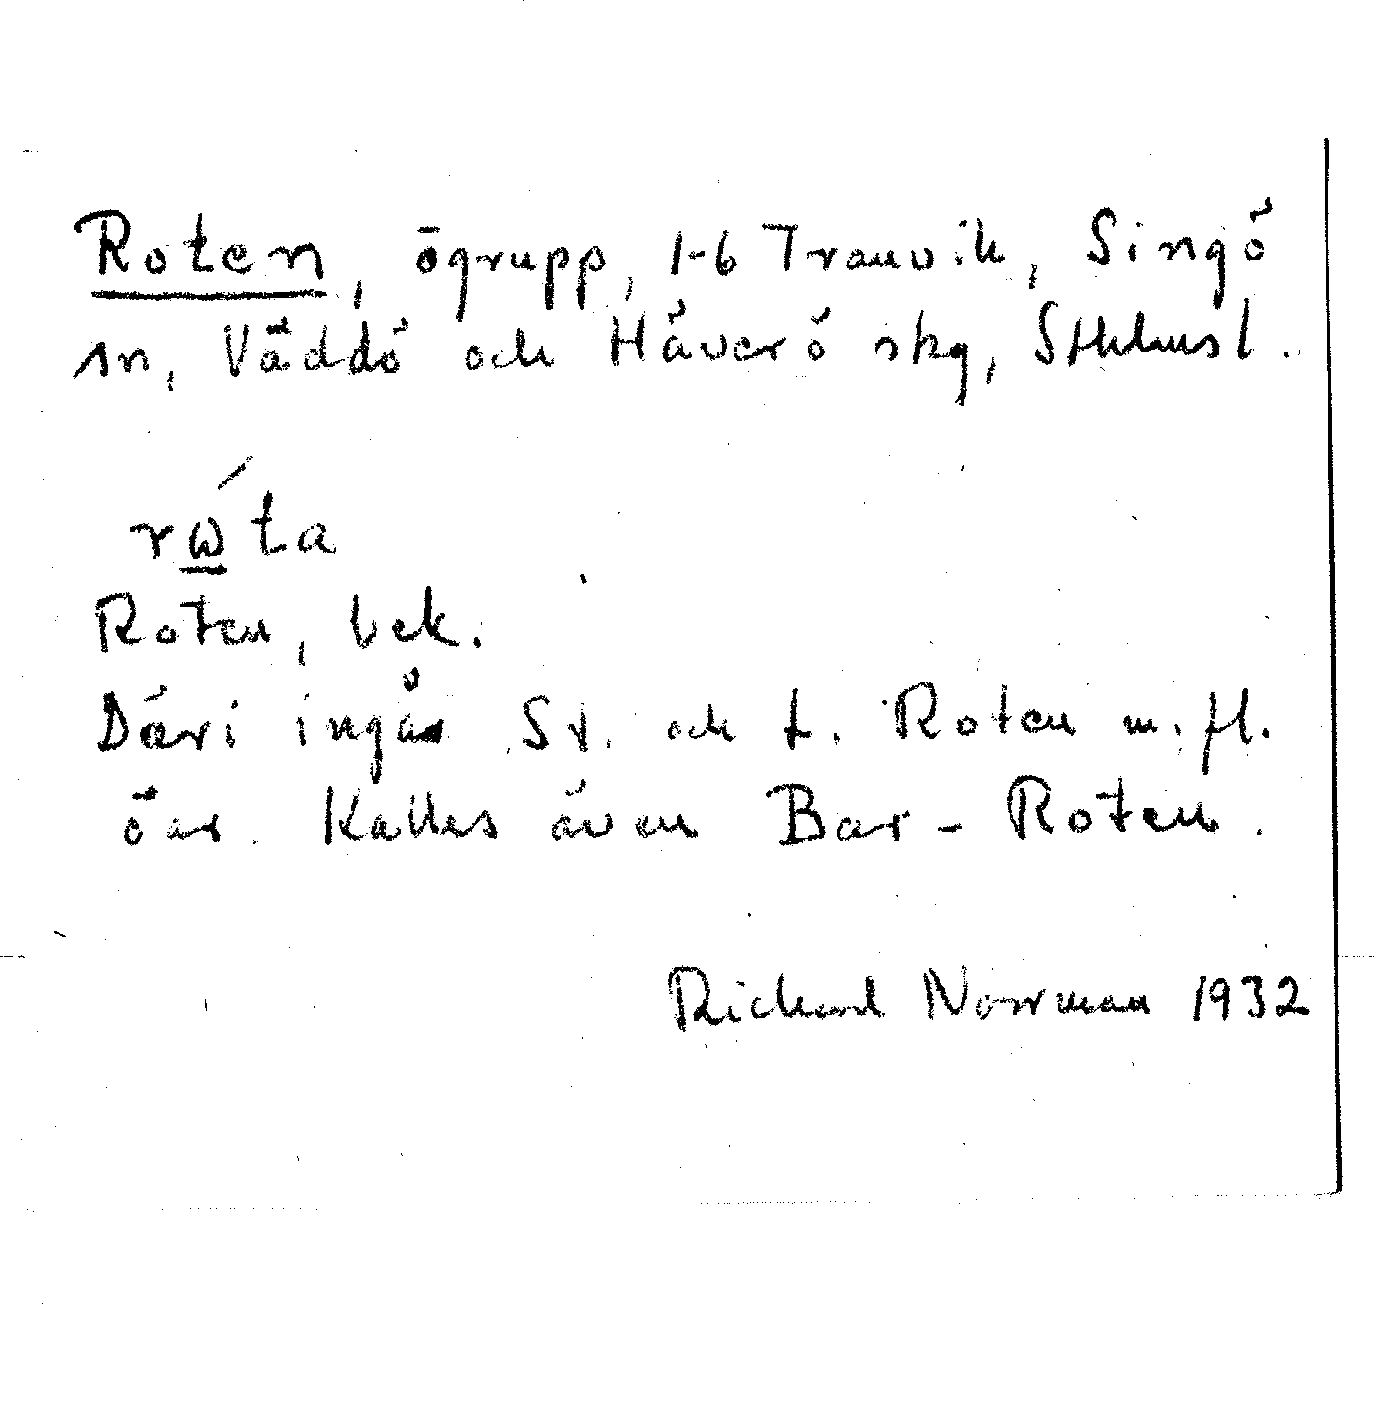 Roten, ögrupp, 1-6 Tranvik, Singö
sn, Väddö och Häverö skg, Sthlmsl.
rώta
Roten, bek.
Däri ingår St. och L. Roten m. fl.
öar. Kallas även Bar-Roten.
Rickard Norrman 1932